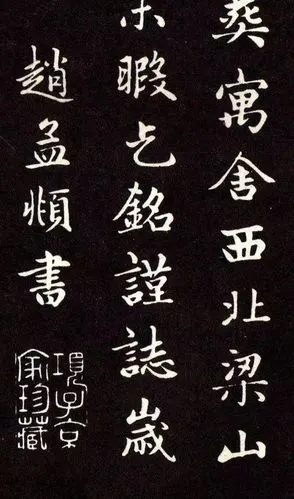 葬寓舍西北梁山
未暇乞銘謹誌歲
趙孟頫書
項子京家珍藏